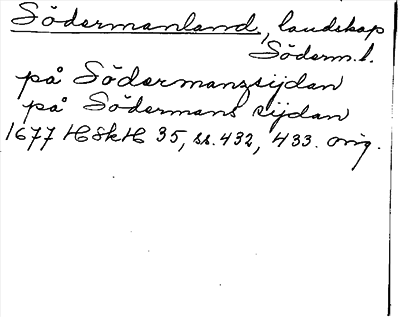 Södermanland, landskap
Söderm.l.
på Södermanssijdan
på Södermans sijdan
1677 HSkH 35, ss. 432, 433. orig.